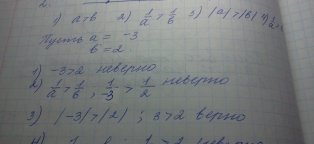 2.
1) a>b 2) 1/a > 1/b 3) |a|>|b| 4)
Пусть a = -3
b = 2.
1) -3>2 неверно
2) 1/a > 1/b ; 1/-3 > 1/2 неверно
3) |-3|>|2| ; 3>2 верно